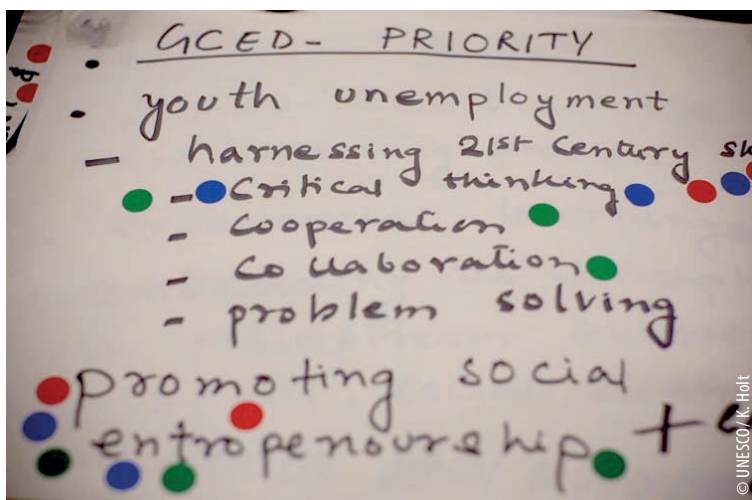 GCED - PRIORITY
• youth unemployment
- harnessing 21st Century
- Critical thinking
- Cooperation
- Collaboration
- problem solving
promoting social
entropenourship +
© UNESCO/ K. Holt